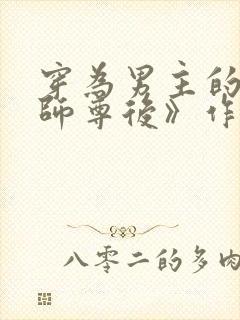 穿為男主的
師尊後》作
八零二的多肉